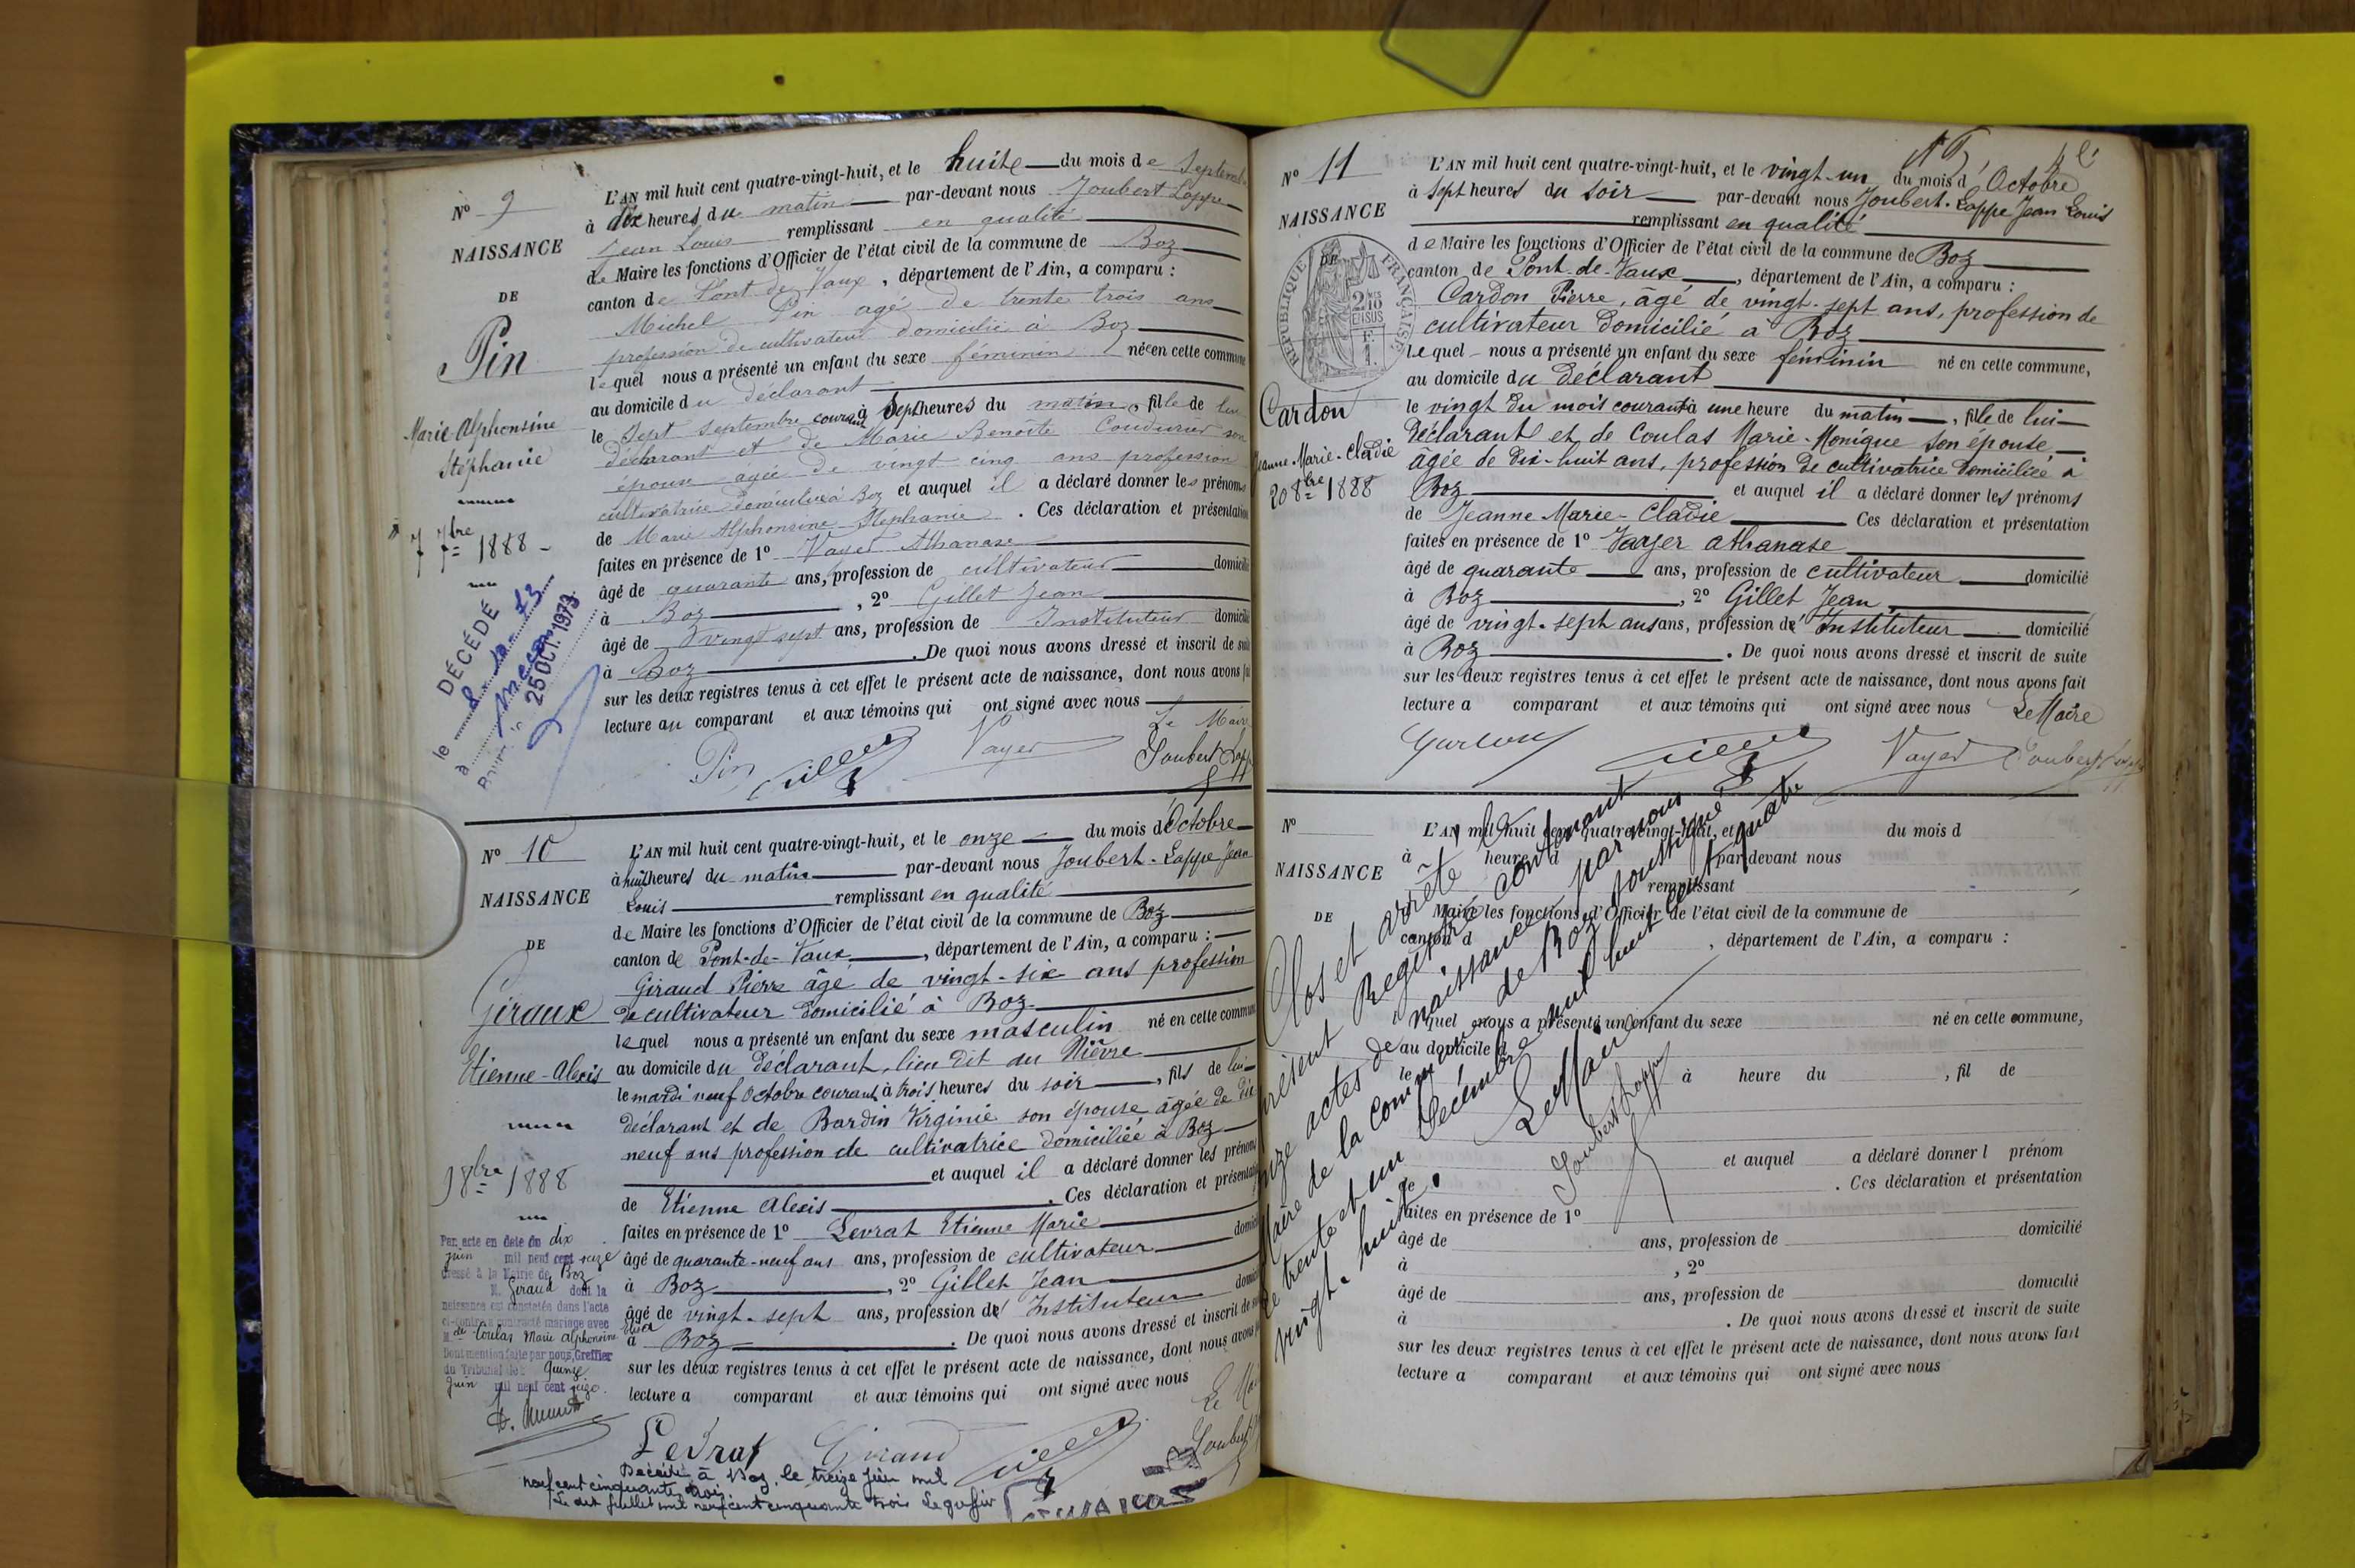 N° 9
NAISSANCE
DE
Pin
Marie Alphonsine
Stéphanie
7 7bre 1888
DÉCÉDÉ
le 8. 10. 73
à Macon
25 OCT. 1973
L'AN mil huit cent quatre-vingt-huit, et le huite du mois de Septemb
à dix heures du matin par-devant nous Joubert Loppe
Jean Louis remplissant en qualité
de Maire les fonctions d'Officier de l'état civil de la commune de Boz
canton de Pont de Vaux, département de l'Ain, a comparu :
Michel Pin agé de trente trois ans
profession de cultivateur domicilié à Boz
lequel nous a présenté un enfant du sexe féminin née en cette commune
au domicile du déclarant
le Sept Septembre courant à Sept heures du matin, fille de lui
déclarant et de Marie Benoite Coudurier son
épouse agée de vingt cinq ans profession
cultivatrice domiciliée à Boz et auquel il a déclaré donner les prénoms
de Marie Alphonsine Stéphanie. Ces déclaration et présentation
faites en présence de 1° Vayer Athanase
âgé de quarante ans, profession de cultivateur domicilié
à Boz, 2° Gillet Jean
âgé de vingt sept ans, profession de Instituteur domicilié
à Boz. De quoi nous avons dressé et inscrit de suite
sur les deux registres tenus à cet effet le présent acte de naissance, dont nous avons fai
lecture au comparant et aux témoins qui ont signé avec nous
Le Maire
Pin Gillet Vayer Joubert Lopp
N° 10
NAISSANCE
DE
Giraux
Etienne-Alexis
9 8bre 1888
Par acte en date du dix
juin mil neuf cent seize
dressé à la Mairie de Boz
M. Giraud dont la
naissance est constatée dans l'acte
ci-contre a contracté mariage avec
Mlle Coulas Marie Alphonsine
Elisa
Dont mention faite par nous, Greffier
du Tribunal le quinze
Juin mil neuf cent seize.
L'AN mil huit cent quatre-vingt-huit, et le onze du mois d'Octobre
à huit heures du matin par-devant nous Joubert-Loppe Jean
Louis remplissant en qualité
de Maire les fonctions d'Officier de l'état civil de la commune de Boz
canton de Pont-de-Vaux, département de l'Ain, a comparu :
Giraud Pierre âgé de vingt-six ans profession
de cultivateur domicilié à Boz
lequel nous a présenté un enfant du sexe masculin né en cette commune
au domicile du déclarant, lieu dit au Nièvre
le mardi neuf Octobre courant à trois heures du soir, fils de lui
déclarant et de Bardin Virginie son épouse âgée de dix
neuf ans profession de cultivatrice domiciliée à Boz
et auquel il a déclaré donner les prénoms
de Etienne Alexis. Ces déclaration et présentation
faites en présence de 1° Levrat Etienne Marie
âgé de quarante-neuf ans ans, profession de cultivateur domici
à Boz, 2° Gillet Jean
âgé de vingt-sept ans, profession de Instituteur domici
à Boz. De quoi nous avons dressé et inscrit de su
sur les deux registres tenus à cet effet le présent acte de naissance, dont nous avons
lecture a comparant et aux témoins qui ont signé avec nous
Le Mai
Levrat Giraud Gillet Joubert
Décédé à Boz, le treize Juin mil
neuf cent cinquante trois
Le dix Juillet mil neuf cent cinquante trois Le greffier
N° 11
NAISSANCE
DE
RÉPUBLIQUE FRANÇAISE
2/10es EN SUS
Cardon
Jeanne-Marie-Cladie
20 8bre 1888
L'AN mil huit cent quatre-vingt-huit, et le vingt-un du mois d'Octobre
à sept heures du soir par-devant nous Joubert-Loppe Jean Louis
remplissant en qualité
de Maire les fonctions d'Officier de l'état civil de la commune de Boz
canton de Pont-de-Vaux, département de l'Ain, a comparu :
Cardon Pierre, âgé de vingt-sept ans, profession de
cultivateur domicilié à Boz
lequel nous a présenté un enfant du sexe féminin né en cette commune,
au domicile du déclarant
le vingt du mois courant à une heure du matin, fille de lui
déclarant et de Coulas Marie-Monique son épouse
âgée de dix-huit ans, profession de cultivatrice domiciliée à
Boz et auquel il a déclaré donner les prénoms
de Jeanne-Marie-Cladie Ces déclaration et présentation
faites en présence de 1° Vayer Athanase
âgé de quarante ans, profession de cultivateur domicilié
à Boz, 2° Gillet Jean
âgé de vingt-sept ans ans, profession de Instituteur domicilié
à Boz. De quoi nous avons dressé et inscrit de suite
sur les deux registres tenus à cet effet le présent acte de naissance, dont nous avons fait
lecture a comparant et aux témoins qui ont signé avec nous Le Maire
Gillet Vayer Joubert Loppe
N°
NAISSANCE
DE
L'AN mil huit cent quatre-vingt-huit, et le du mois d
à heure d par-devant nous
remplissant
Maire les fonctions d'Officier de l'état civil de la commune de
canton d, département de l'Ain, a comparu :
quel nous a présenté un enfant du sexe né en cette commune,
au domicile d
le à heure du, fil de
et auquel a déclaré donner l prénom
de. Ces déclaration et présentation
faites en présence de 1°
âgé de ans, profession de domicilié
à, 2°
âgé de ans, profession de domicilié
à. De quoi nous avons dressé et inscrit de suite
sur les deux registres tenus à cet effet le présent acte de naissance, dont nous avons fait
lecture a comparant et aux témoins qui ont signé avec nous
Clos et arrêté le
présent Registre contenant
onze actes de naissance par nous
Maire de la commune de Boz soussigné
le trente et un Décembre mil huit cent quatre
vingt-huit.
Le Maire
Joubert Loppe